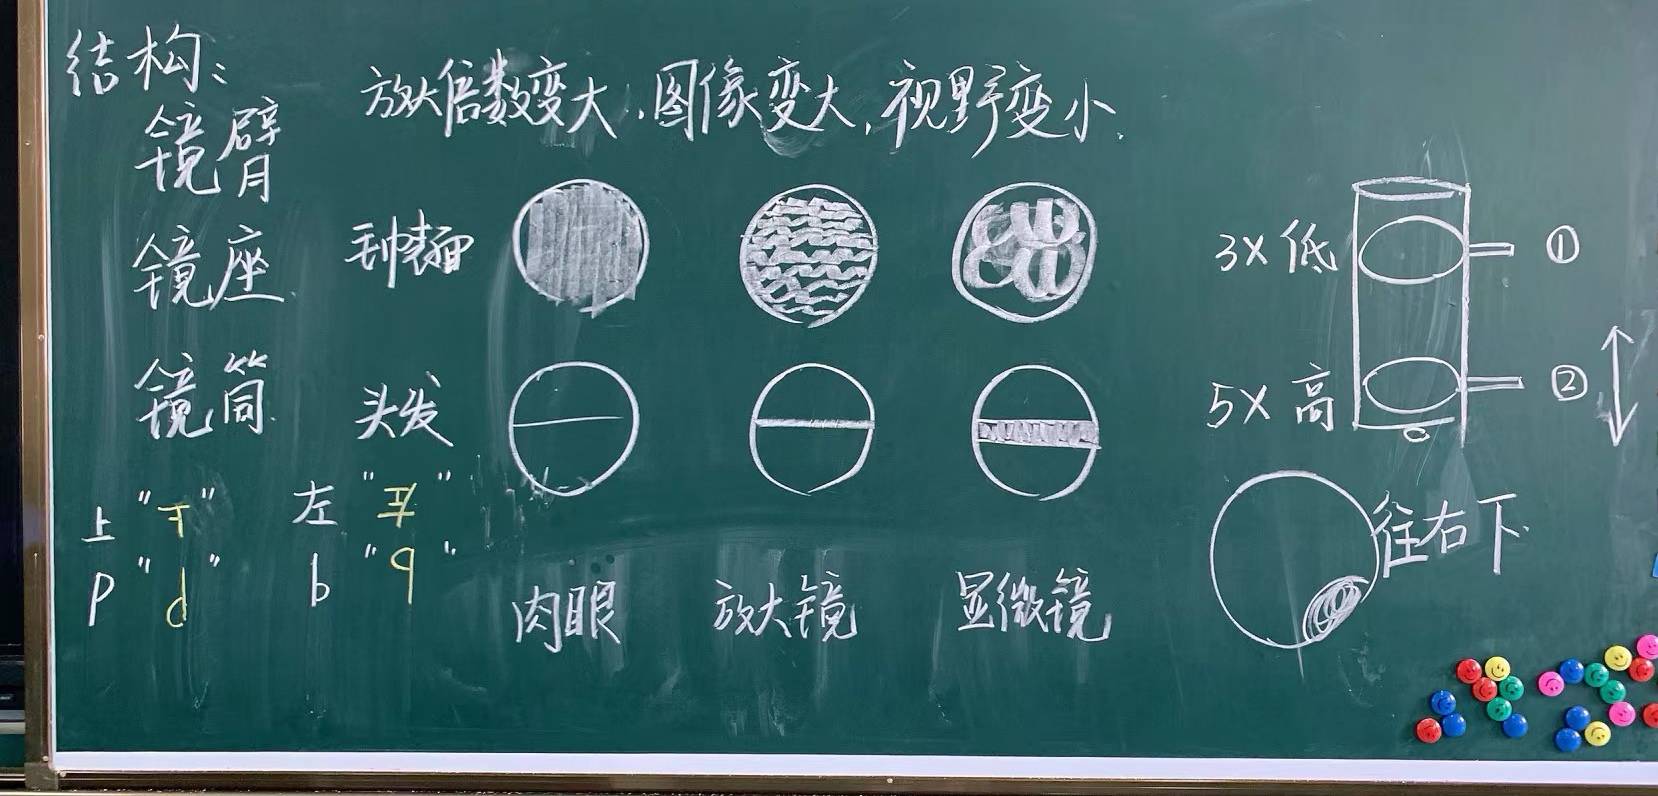 结构：
镜臂
镜座
镜筒
放大倍数变大，图像变大，视野变小。
头发
肉眼
放大镜
显微镜
上 " "
p "d"
左 " "
b "q"
3X 低 ①
5X 高 ②
往右下